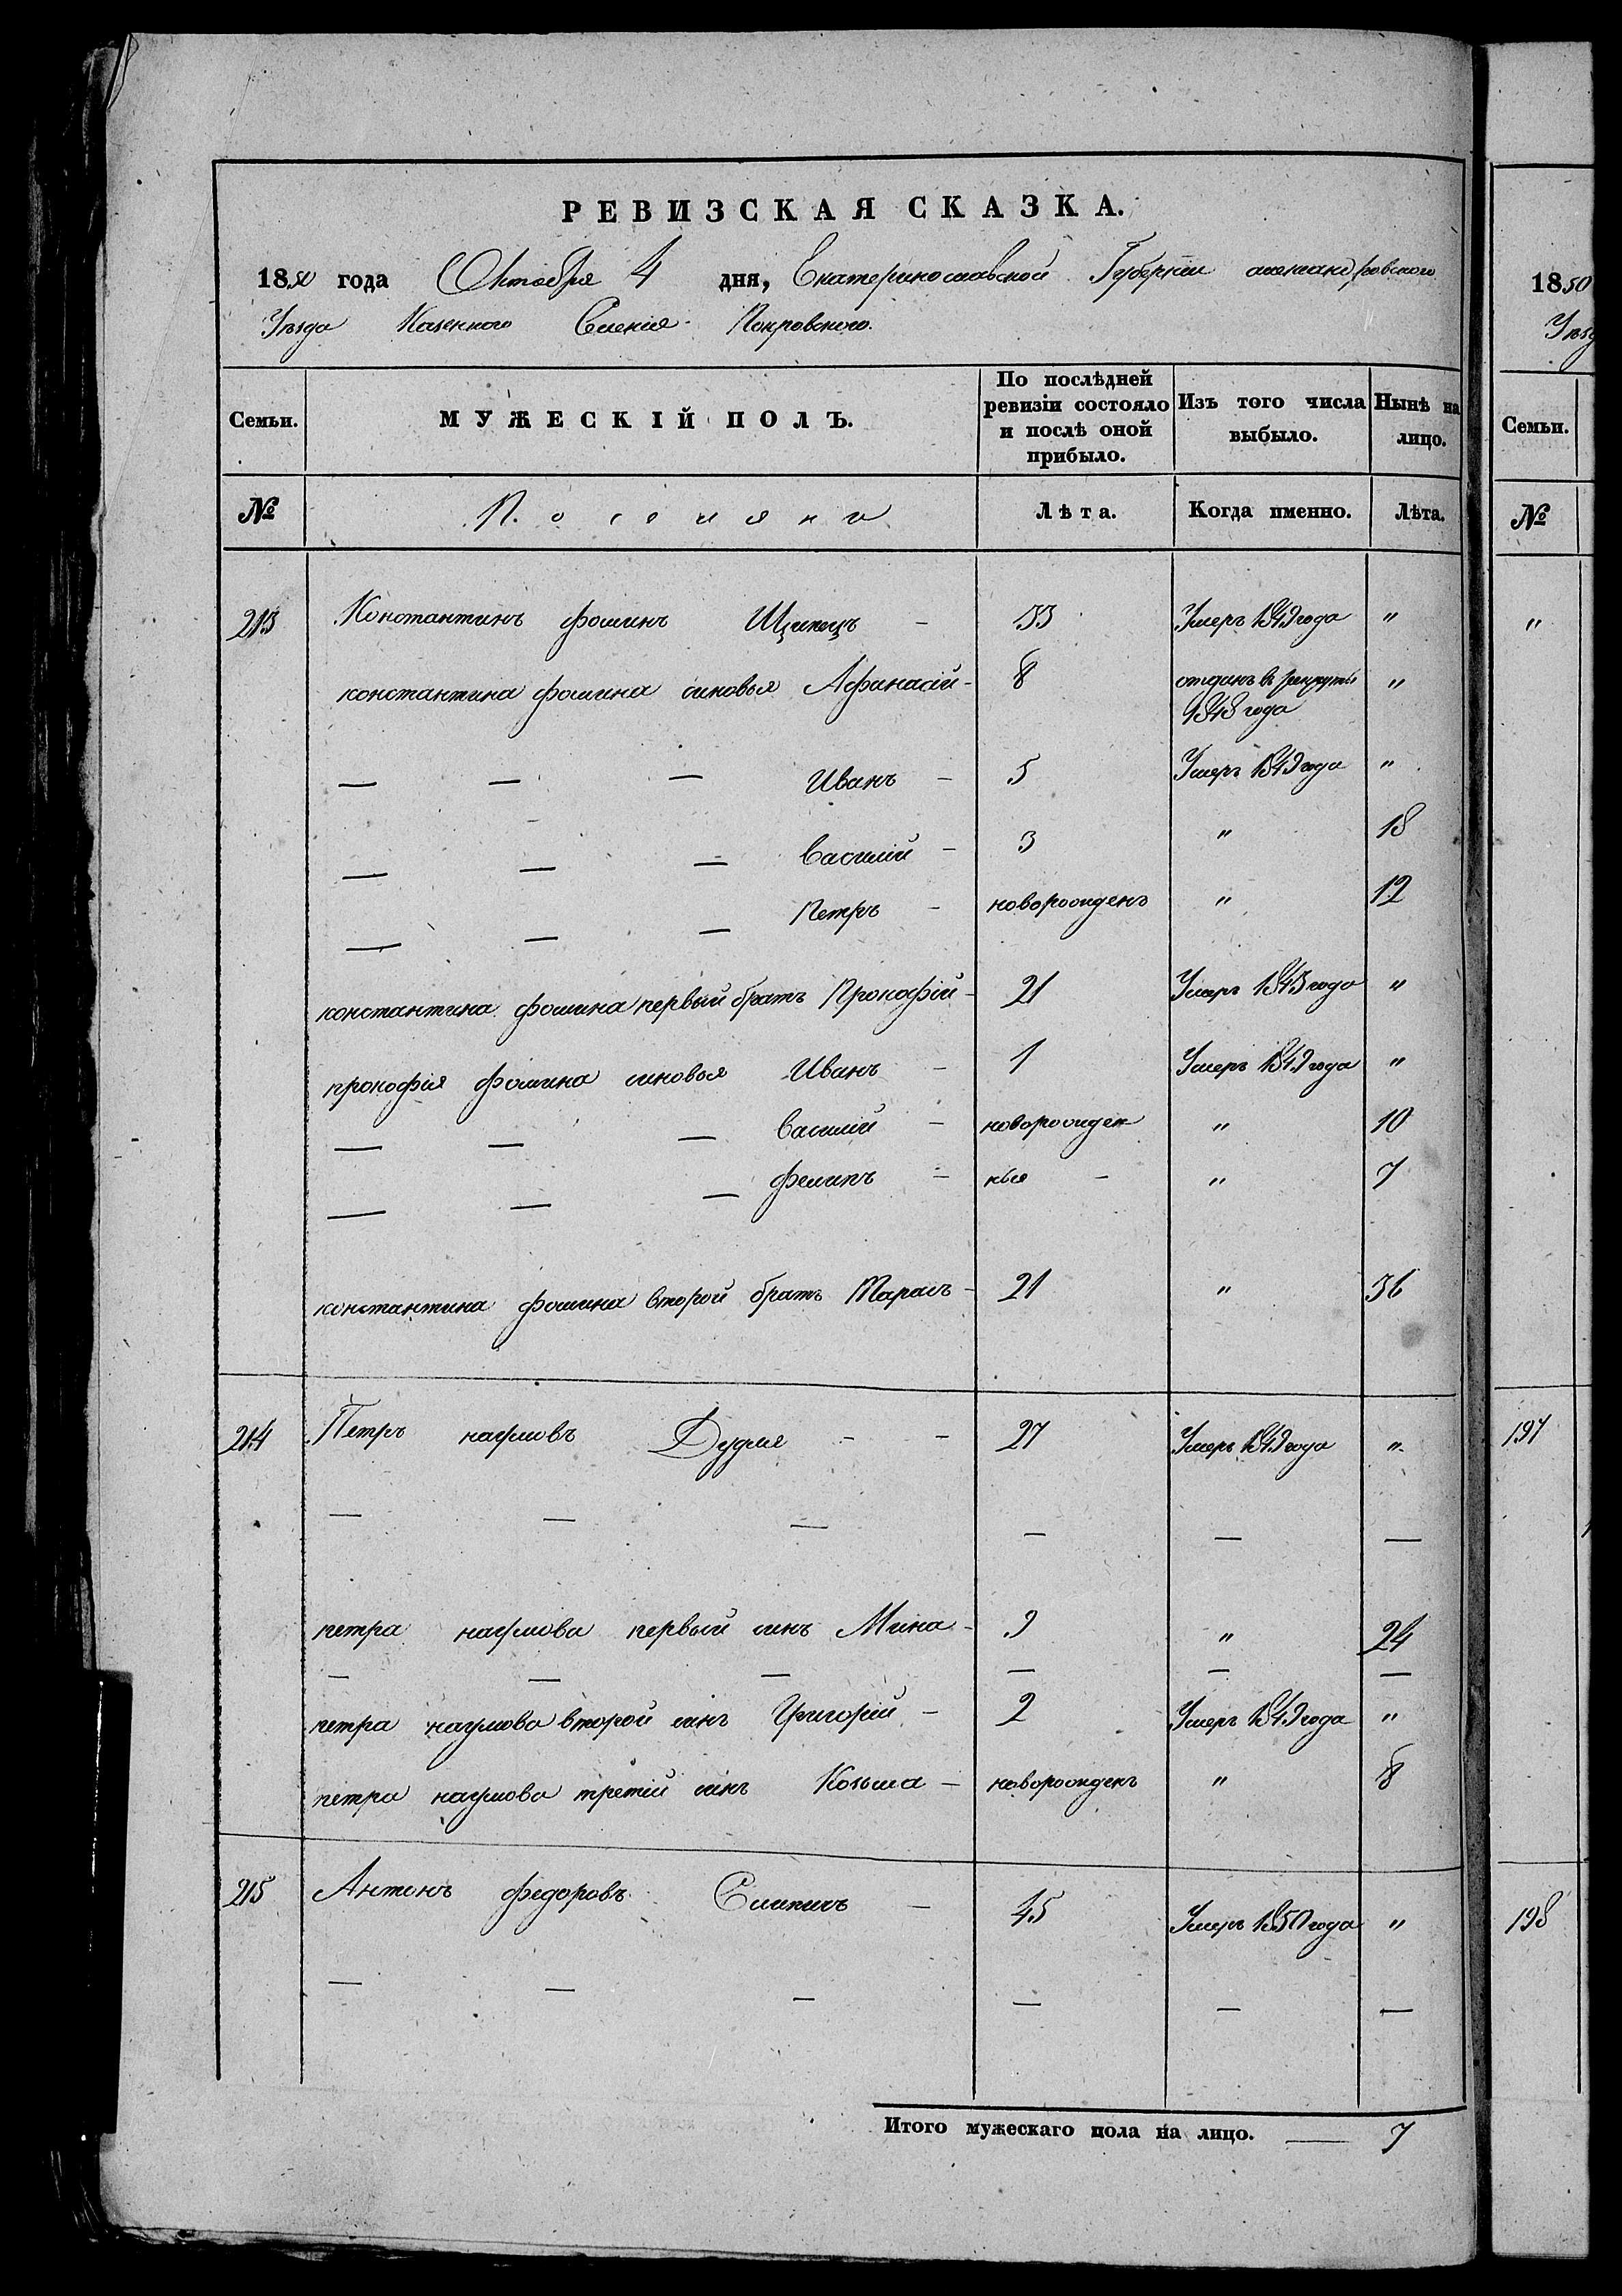 РЕВИЗСКАЯ СКАЗКА.
1850 года Октября 4 дня, Екатеринославской Губерніи александровского
Уѣзда Казенного Селенія Покровского.
Семьи. МУЖЕСКІЙ ПОЛЪ. По послѣдней ревизіи состояло и послѣ оной прибыло. Изъ того числа выбыло. Нынѣ на лицо.
№ Поселяни Лѣта. Когда именно. Лѣта.
213 Константинъ фоминъ Щипецъ - 33 Умеръ 1849 года "
константина фомина синовья Афанасій - 8 отданъ в рекруты 1848 года "
— — — Иванъ - 5 Умеръ 1849 года "
— — — Василій - 3 " 18
— — — Петръ - новорожденъ " 12
константина фомина первый братъ Прокофій - 21 Умеръ 1845 года "
прокофія фомина синовья Иванъ - 1 Умеръ 1849 года "
— — — Василій - новорожден " 10
— — — фелипъ - ныя - " 7
константина фомина второй братъ Тарасъ - 21 " 36
214 Петръ наумовъ Дудля - - 27 Умеръ 1849 года "
— — — — — —
петра наумова первый синъ Мина - 9 " 24
— — — — — —
петра наумова второй синъ Григорій - 2 Умеръ 1849 года "
петра наумова третій синъ Козьма - новорожденъ " 8
215 Антонъ федоровъ - 45 Умеръ 1850 года "
— — — — — —
Итого мужескаго пола на лицо. — 7
1850
Уѣзд
Семьи.
№
"
197
198